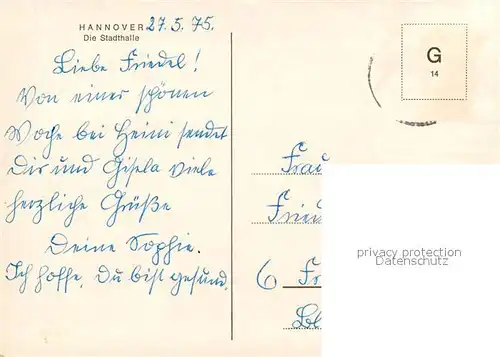 HANNOVER 27.5.75.
Die Stadthalle
Liebe Friedel!
Von einer schönen
Woche bei Heini sendet
Dir und Gisela viele
herzliche Grüße
Deine Sophie.
Ich hoffe, Du bist gesund.
G
14
Frau
Fried
6 Fr
privacy protection
Datenschutz